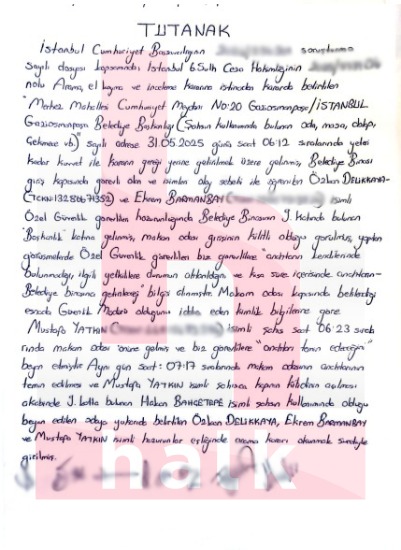 TUTANAK
İstanbul Cumhuriyet Başsavcılığının soruşturma
sayılı dosyası kapsamında İstanbul 6.Sulh Ceza Hakimliğinin
nolu Arama, el koyma ve inceleme kararına istinaden kararda belirtilen
"Merkez Mahallesi Cumhuriyet Meydanı No:20 Gaziosmanpaşa/İSTANBUL
Gaziosmanpaşa Belediye Başkanlığı (Şahsın kullanımında bulunan oda, masa, dolap,
Çekmece vb.)" sayılı adrese 31.05.2025 günü saat 06:12 sıralarında yeteri
kadar kuvvet ile kararın gereği yerine getirilmek üzere gelinmiş, Belediye Binası
giriş kapısında görevli olan ve isimleri olay sebebi ile öğrenilen Özkan DELİKKAYA-
ve Ekrem BARMANBAY isimli
Özel Güvenlik görevlileri hazurunluğunda Belediye Binasının 7. Katında bulunan
"Başkanlık" katına gelinmiş, makam odası girişinin kilitli olduğu görülmüş, yapılan
görüşmelerde Özel Güvenlik görevlileri biz görevlilere "anahtarın kendilerinde
bulunmadığı, ilgili yetkililere durumun aktarıldığını ve kısa süre içerisinde anahtarın-
Belediye binasına getirileceği" bilgisi alınmıştır. Makam odası kapısında beklenildiği
esnada Güvenlik Müdürü olduğunu iddia eden kimlik bilgilerine göre
Mustafa YATKIN isimli şahıs saat 06:23 sırala
rında makam odası önüne gelmiş ve biz görevlilere "anahtarı temin edeceğim"
beyan etmiştir. Aynı gün saat: 07:17 sıralarında makam odasının anahtarının
temin edilmesi ve Mustafa YATKIN isimli şahısca kapının kilidinin açılması
akabinde 7. katta bulunan Hakan BAHÇETEPE isimli şahsın kullanımında olduğu
beyan edilen odaya yukarıda belirtilen Özkan DELİKKAYA, Ekrem BARMANBAY
ve Mustafa YATKIN isimli hazurunlar eşliğinde arama kararı okunmak suretiyle
girilmiştir.
halk